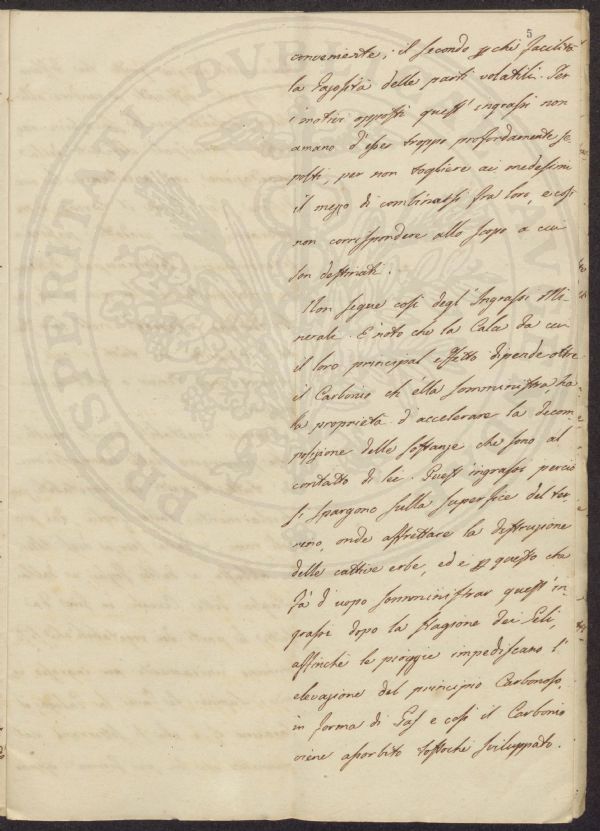 5
conveniente; il secondo pchè facilita
la Gazosità delle parti volatili. Per
i motivi opposti quest'ingrassi non
amano d'esser troppo profondamente se
polti, per non togliere ai medesimi
il mezzo di combinarsi fra loro, e così
non corrispondere allo scopo a cui
son destinati.
Non segue così degl'Ingrassi Mi-
nerali. È noto che la Calce da cui
il loro principal effetto dipende oltre
il Carbonio ch'ella somministra, ha
la proprietà d'accelerare la decom
posizione delle sostanze che sono al
contatto di lei. Quest'ingrassi perciò
si spargono sulla superfice del ter
reno, onde affrettare la distruzione
delle cattive erbe, ed è p questo che
fà d'uopo somministrar quest'in-
grassi dopo la stagione dei Geli,
affinchè le pioggie impediscano l'
elevazione del principio Carbonoso,
in forma di Gas e così il Carbonio
viene assorbito tostochè sviluppato.
PROSPERITATI PUBL